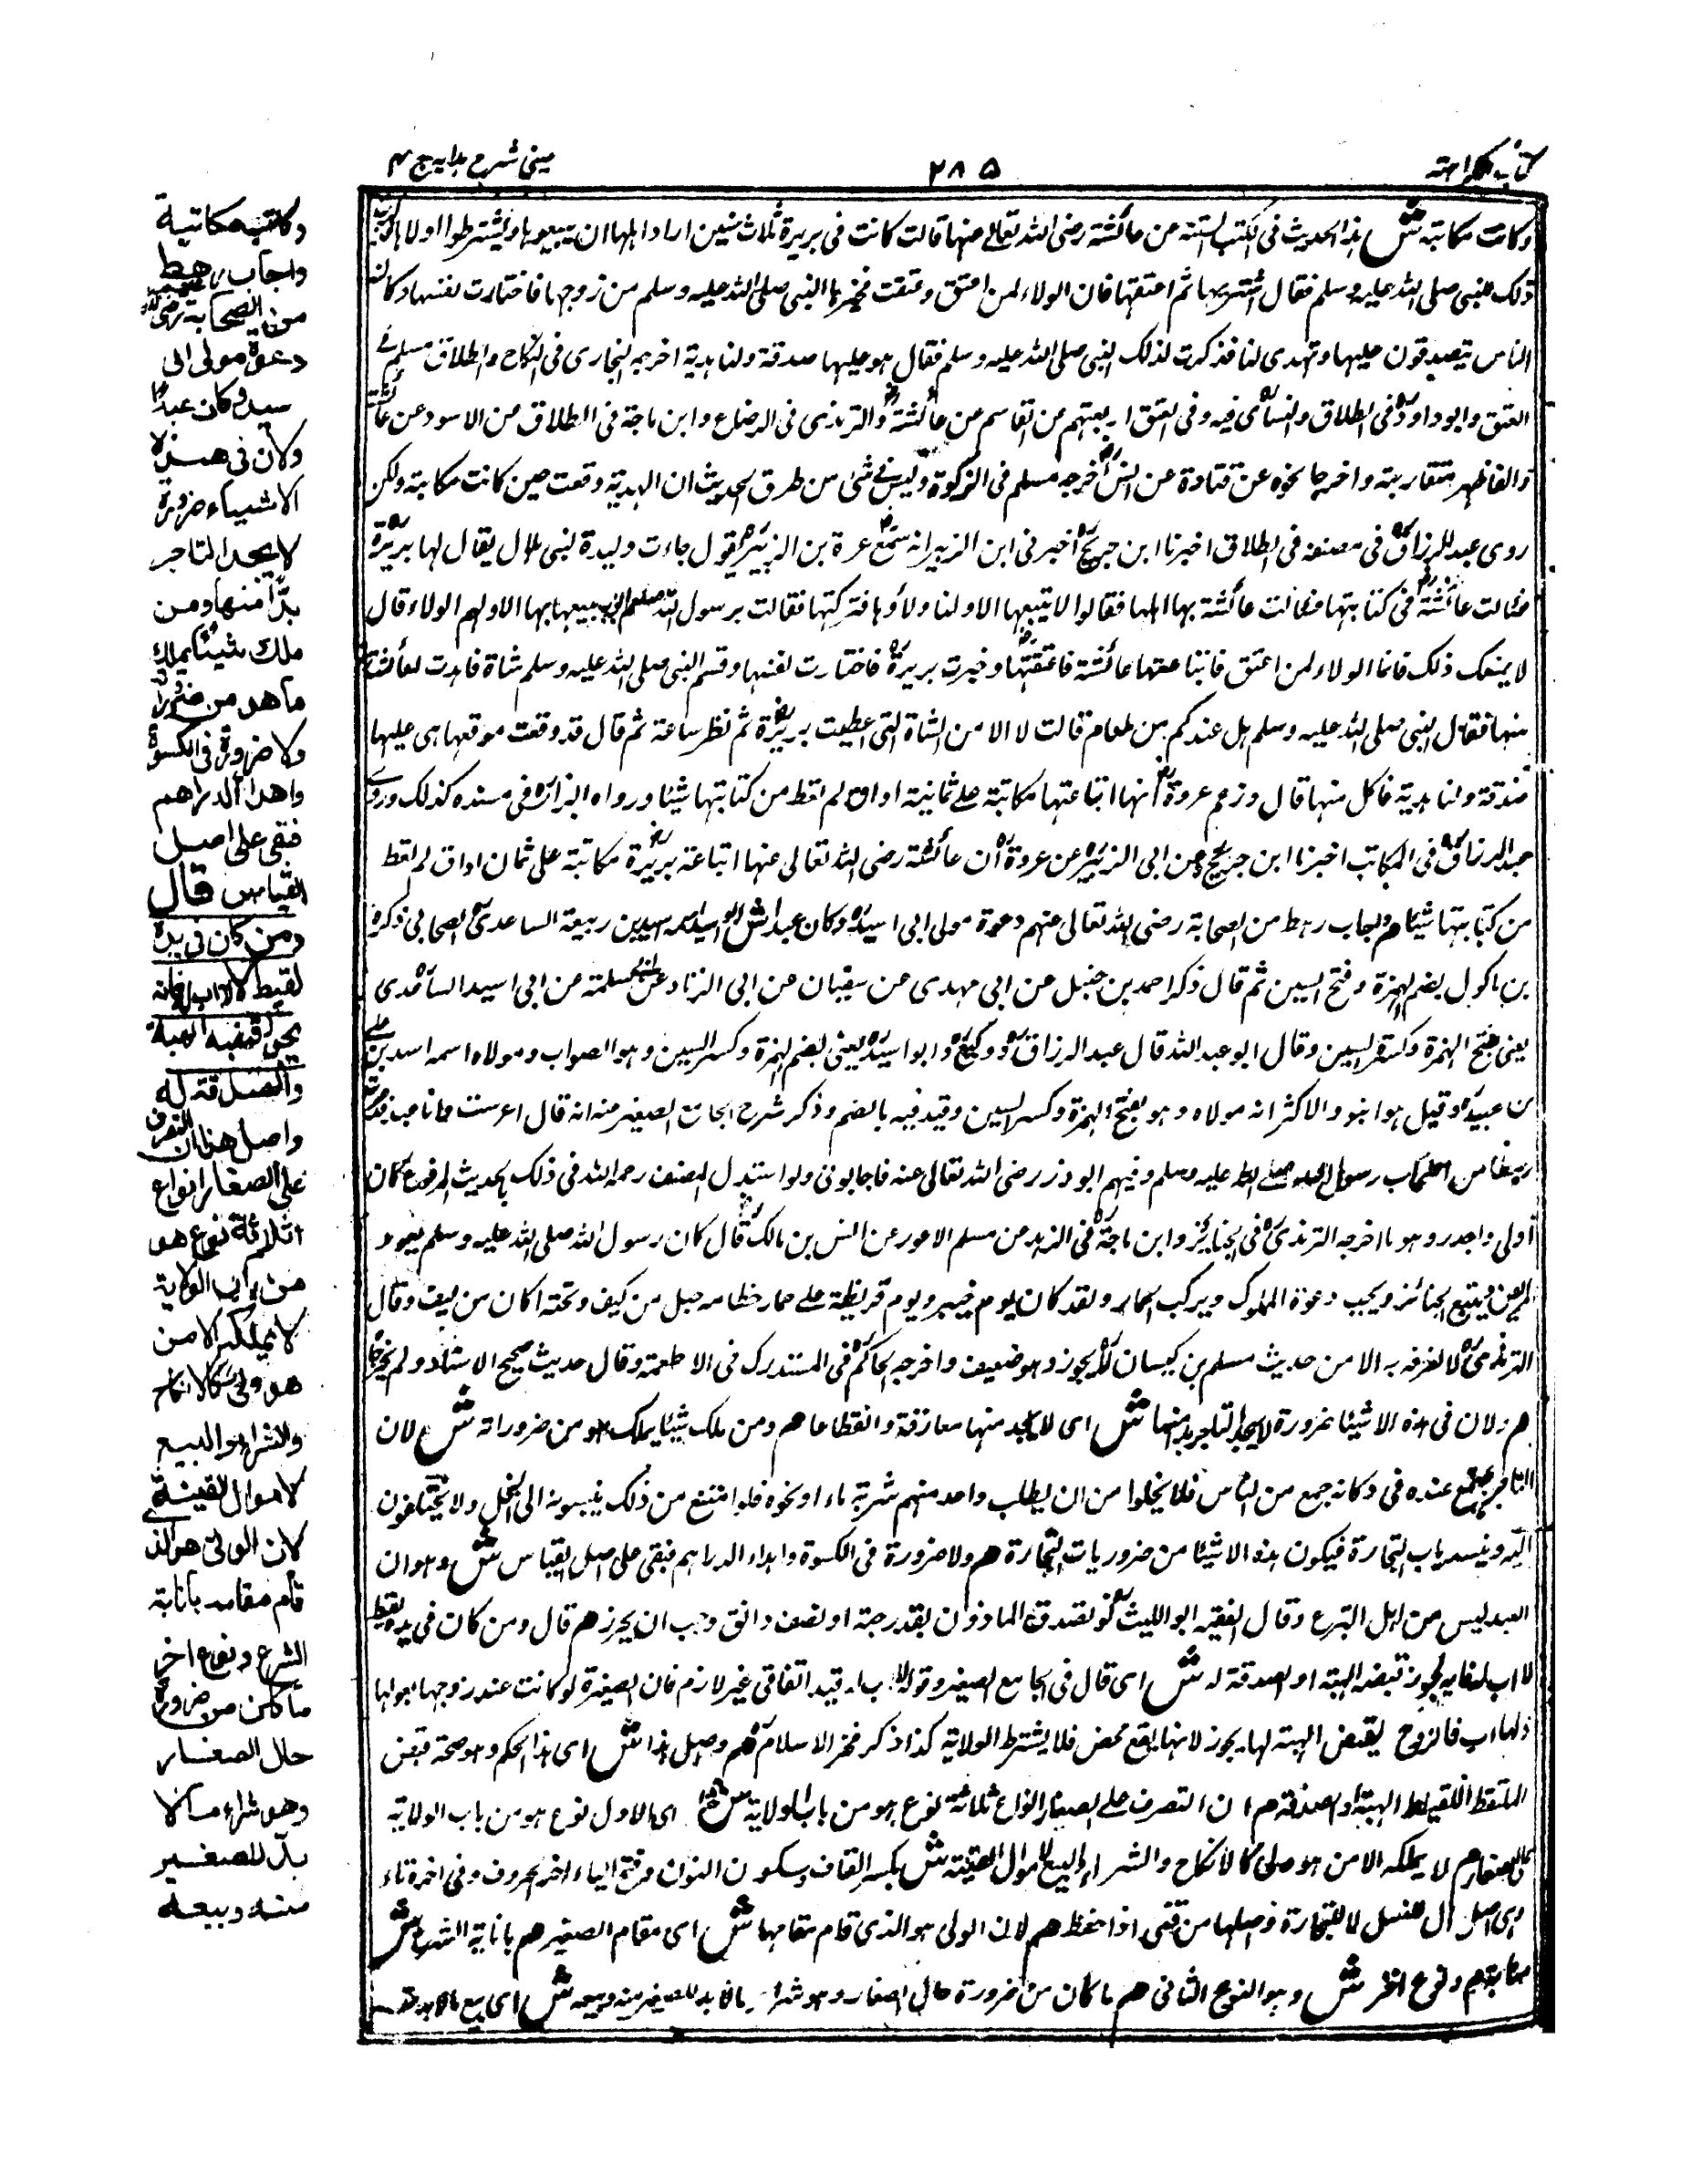 كتاب الكراهية
٢٨٥
عيني شرح هدايه ج ٤
وكانت مكاتبة ش هذا الحديث في الكتب الستة عن عائشة رضي الله تعالى عنها قالت كانت في بريرة ثلاث سنين اراد اهلها ان يبيعوها ويشترطوا ولاءها فذكرت
ذلك للنبي صلى الله عليه وسلم فقال اشتريها ثم اعتقيها فان الولاء لمن اعتق وعتقت فخيرها النبي صلى الله عليه وسلم من زوجها فاختارت نفسها وكان
الناس يتصدقون عليها وتهدى لنا فذكرت لذلك النبي صلى الله عليه وسلم فقال هو عليها صدقة ولنا هدية اخرجه البخاري في النكاح والطلاق مسلم في
العتق وابو داود في الطلاق والنسائي فيه وفي العتق اربعتهم من القاسم عن عائشة والترمذي في الرضاع وابن ماجة في الطلاق من الاسود عن عائشة
والفاظهم متقاربة واخرجا نحوه عن قتادة عن انس اخرجه مسلم في الزكوة وليس في شئ من طرق الحديث ان الهدية وقعت حين كانت مكاتبة ولكن
روى عبد الرزاق في مصنفه في الطلاق اخبرنا ابن جريج اخبرني ابن الزبير انه سمع عروة بن الزبير يقول جاءت وليدة لبني هلال يقال لها بريرة
فقالت عائشة في كتابتها فقالت عائشة بها اهلها فقالوا لا نبيعها الا ولنا ولاؤها فتركتها فقالت يرسول الله صلعم ابوا بيعها الا ولهم الولاء قال
لا يمنعك ذلك فانما الولاء لمن اعتق فابتاعتها عائشة فاعتقتها وخيرت بريرة فاختارت نفسها وقسم النبي صلى الله عليه وسلم شاة فاهدت لعائشة
منها فقال النبي صلى الله عليه وسلم هل عندكم من طعام قالت لا الا من الشاة التي اعطيت بريرة ثم نظر ساعة ثم قال قد وقعت موقعها هي عليها
صدقة ولنا هدية فاكل منها قال وزعم عروة انها ابتاعتها مكاتبة على ثمانية اواق لم تقط من كتابتها شيئا ورواه البزار في مسنده كذلك وروى
عبد الرزاق في المكاتب اخبرنا ابن جريج عن ابي الزبير عن عروة ان عائشة رضي الله تعالى عنها ابتاعت بريرة مكاتبة على ثمان اواق لم تقط
من كتابتها شيئا هم واجاب رهط من الصحابة رضي الله تعالى عنهم دعوة مولى ابي اسيد وكان عبدا ش ابو اسيد اسمه بن ربيعة الساعدي الصحابي ذكره
بن ماكولا بضم الهمزة وفتح السين ثم قال ذكر احمد بن حنبل عن ابي مهدى عن سفيان عن ابي الزناد عن ابي سلمة عن ابي اسيد الساعدي
يعني بفتح الهمزة وكسر السين وقال ابو عبد الله قال عبد الرزاق ووكيع وابو اسيد يعني بضم الهمزة وكسر السين وهو الصواب ومولاه اسمه اسد بن علي
بن عبيد وقيل هو ابنه والاكثر انه مولاه وهو بفتح الهمزة وكسر السين وقيد فيه بالضم وذكر شرح الجامع الصغير منه انه قال اعرست وانا عبد فدعوت
رهطا من اصحاب رسول الله صلى الله عليه وسلم وفيهم ابو ذر رضي الله تعالى عنه فاجابوني ولو استدل المصنف رحمه الله في ذلك بالحديث المرفوع كان
اولى واجدر وهو ما اخرجه الترمذي في الجنائز وابن ماجة في الزهد من مسلم الاعور عن انس بن مالك قال كان رسول الله صلى الله عليه وسلم يعود
المريض ويتبع الجنائز ويجيب دعوة المملوك ويركب الحمار ولقد كان يوم خيبر ويوم قريظة على حمار خطامه حبل من ليف وتحته اكاف من ليف وقال
الترمذي لا نعرفه به الا من حديث مسلم بن كيسان الاعور وهو ضعيف واخرجه الحاكم في المستدرك في الاطعمة وقال حديث صحيح الاسناد ولم يخرجاه
هم ولان في هذه الاشياء ضرورة لا يجد التاجر بدا منها ش اي لا يجد منها مفارقة وانقطاعا هم ومن ملك شيئا يملك ما هو من ضروراته ش لان
التاجر يجتمع عنده في دكانه جمع من الناس فلا يخلوا من ان يطلب واحد منهم شربة ماء او نحوه فلو امتنع من ذلك ينسبونه الى البخل ولا يختلفون
اليه وينسد باب التجارة فيكون هذه الاشياء من ضروريات التجارة هم ولا ضرورة في الكسوة واهداء الدراهم فبقي على اصل القياس ش وهو ان
العبد ليس من اهل التبرع وقال الفقيه ابو الليث لو تصدق الماذون بقدر حبة او نصف دانق وجب ان يجوز هم قال ومن كان في يده لقيط
لا اب له فانه يجوز قبضه الهبة او الصدقة له ش اي قال في الجامع الصغير وقوله لا اب له قيد اتفاقي غير لازم فان الصغيرة لو كانت عند زوجها يعولها
ولها اب فالزوج يقبض الهبة لها يجوز لانها نفع محض فلا يشترط الولاية كذا ذكر فخر الاسلام هم واصل هذا ش اي هذا الحكم وهو صحة قبض
الملتقط للقيط الهبة او الصدقة هم ان التصرف على الصغار انواع ثلاثة نوع هو من باب الولاية ش اي الاول نوع هو من باب الولاية
على الصغار هم لا يملكه الا من هو ولي كالانكاح والشراء والبيع لاموال القنية ش بكسر القاف وسكون النون وفتح الياء اخر الحروف وفي اخره تاء
وهي اصل المال للنسل لا للتجارة واصلها من قنى اذا حفظ هم لان الولي هو الذي قام مقامها ش اي مقام الصغير هم بانابة الشرع ش
هم ونوع اخر ش وهو النوع الثاني هم ما كان من ضرورة حال الصغار وهو شراء ما لا بد للصغير منه وبيعه ش اي بيع ما لا بد منه
وكانت مكاتبة
واجاب رهط
من الصحابة رضي الله عنهم
دعوة مولى ابي
سيد وكان عبدا
ولان في هذه
الاشياء ضرورة
لا يجد التاجر
بدّا منها ومن
ملك شيئا يملك
ما هو من ضروراته
ولا ضرورة في الكسوة
واهداء الدراهم
فبقي على اصل
القياس قال
ومن كان في يده
لقيط لا اب له فانه
يجوز قبضه الهبة
والصدقة له
واصل هذا ان التصرف
على الصغار انواع
ثلاثة نوع هو
من باب الولاية
لا يملكه الا من
هو ولي كالانكاح
والشراء والبيع
لاموال القنية
لان الولي هو الذي
قام مقامه بانابة
الشرع ونوع اخر
ما كان من ضرورة
حال الصغار
وهو شراء ما لا
بدّ للصغير
منه وبيعه